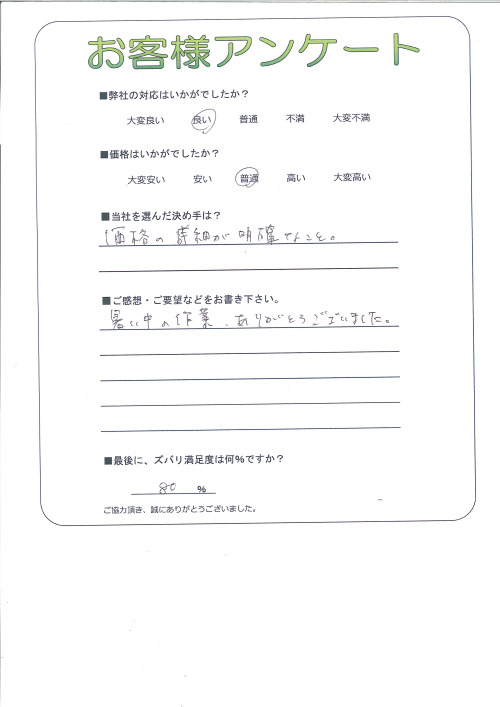 お客様アンケート
■弊社の対応はいかがでしたか？
大変良い 良い 普通 不満 大変不満
■価格はいかがでしたか？
大変安い 安い 普通 高い 大変高い
■当社を選んだ決め手は？
価格の詳細が明確なこと。
■ご感想・ご要望などをお書き下さい。
暑い中の作業、ありがとうございました。
■最後に、ズバリ満足度は何%ですか？
80 %
ご協力頂き、誠にありがとうございました。